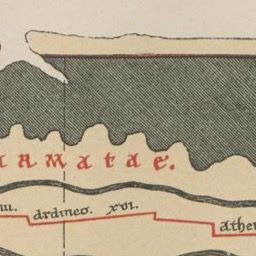 armatae.
ardineo. xvi.
athe